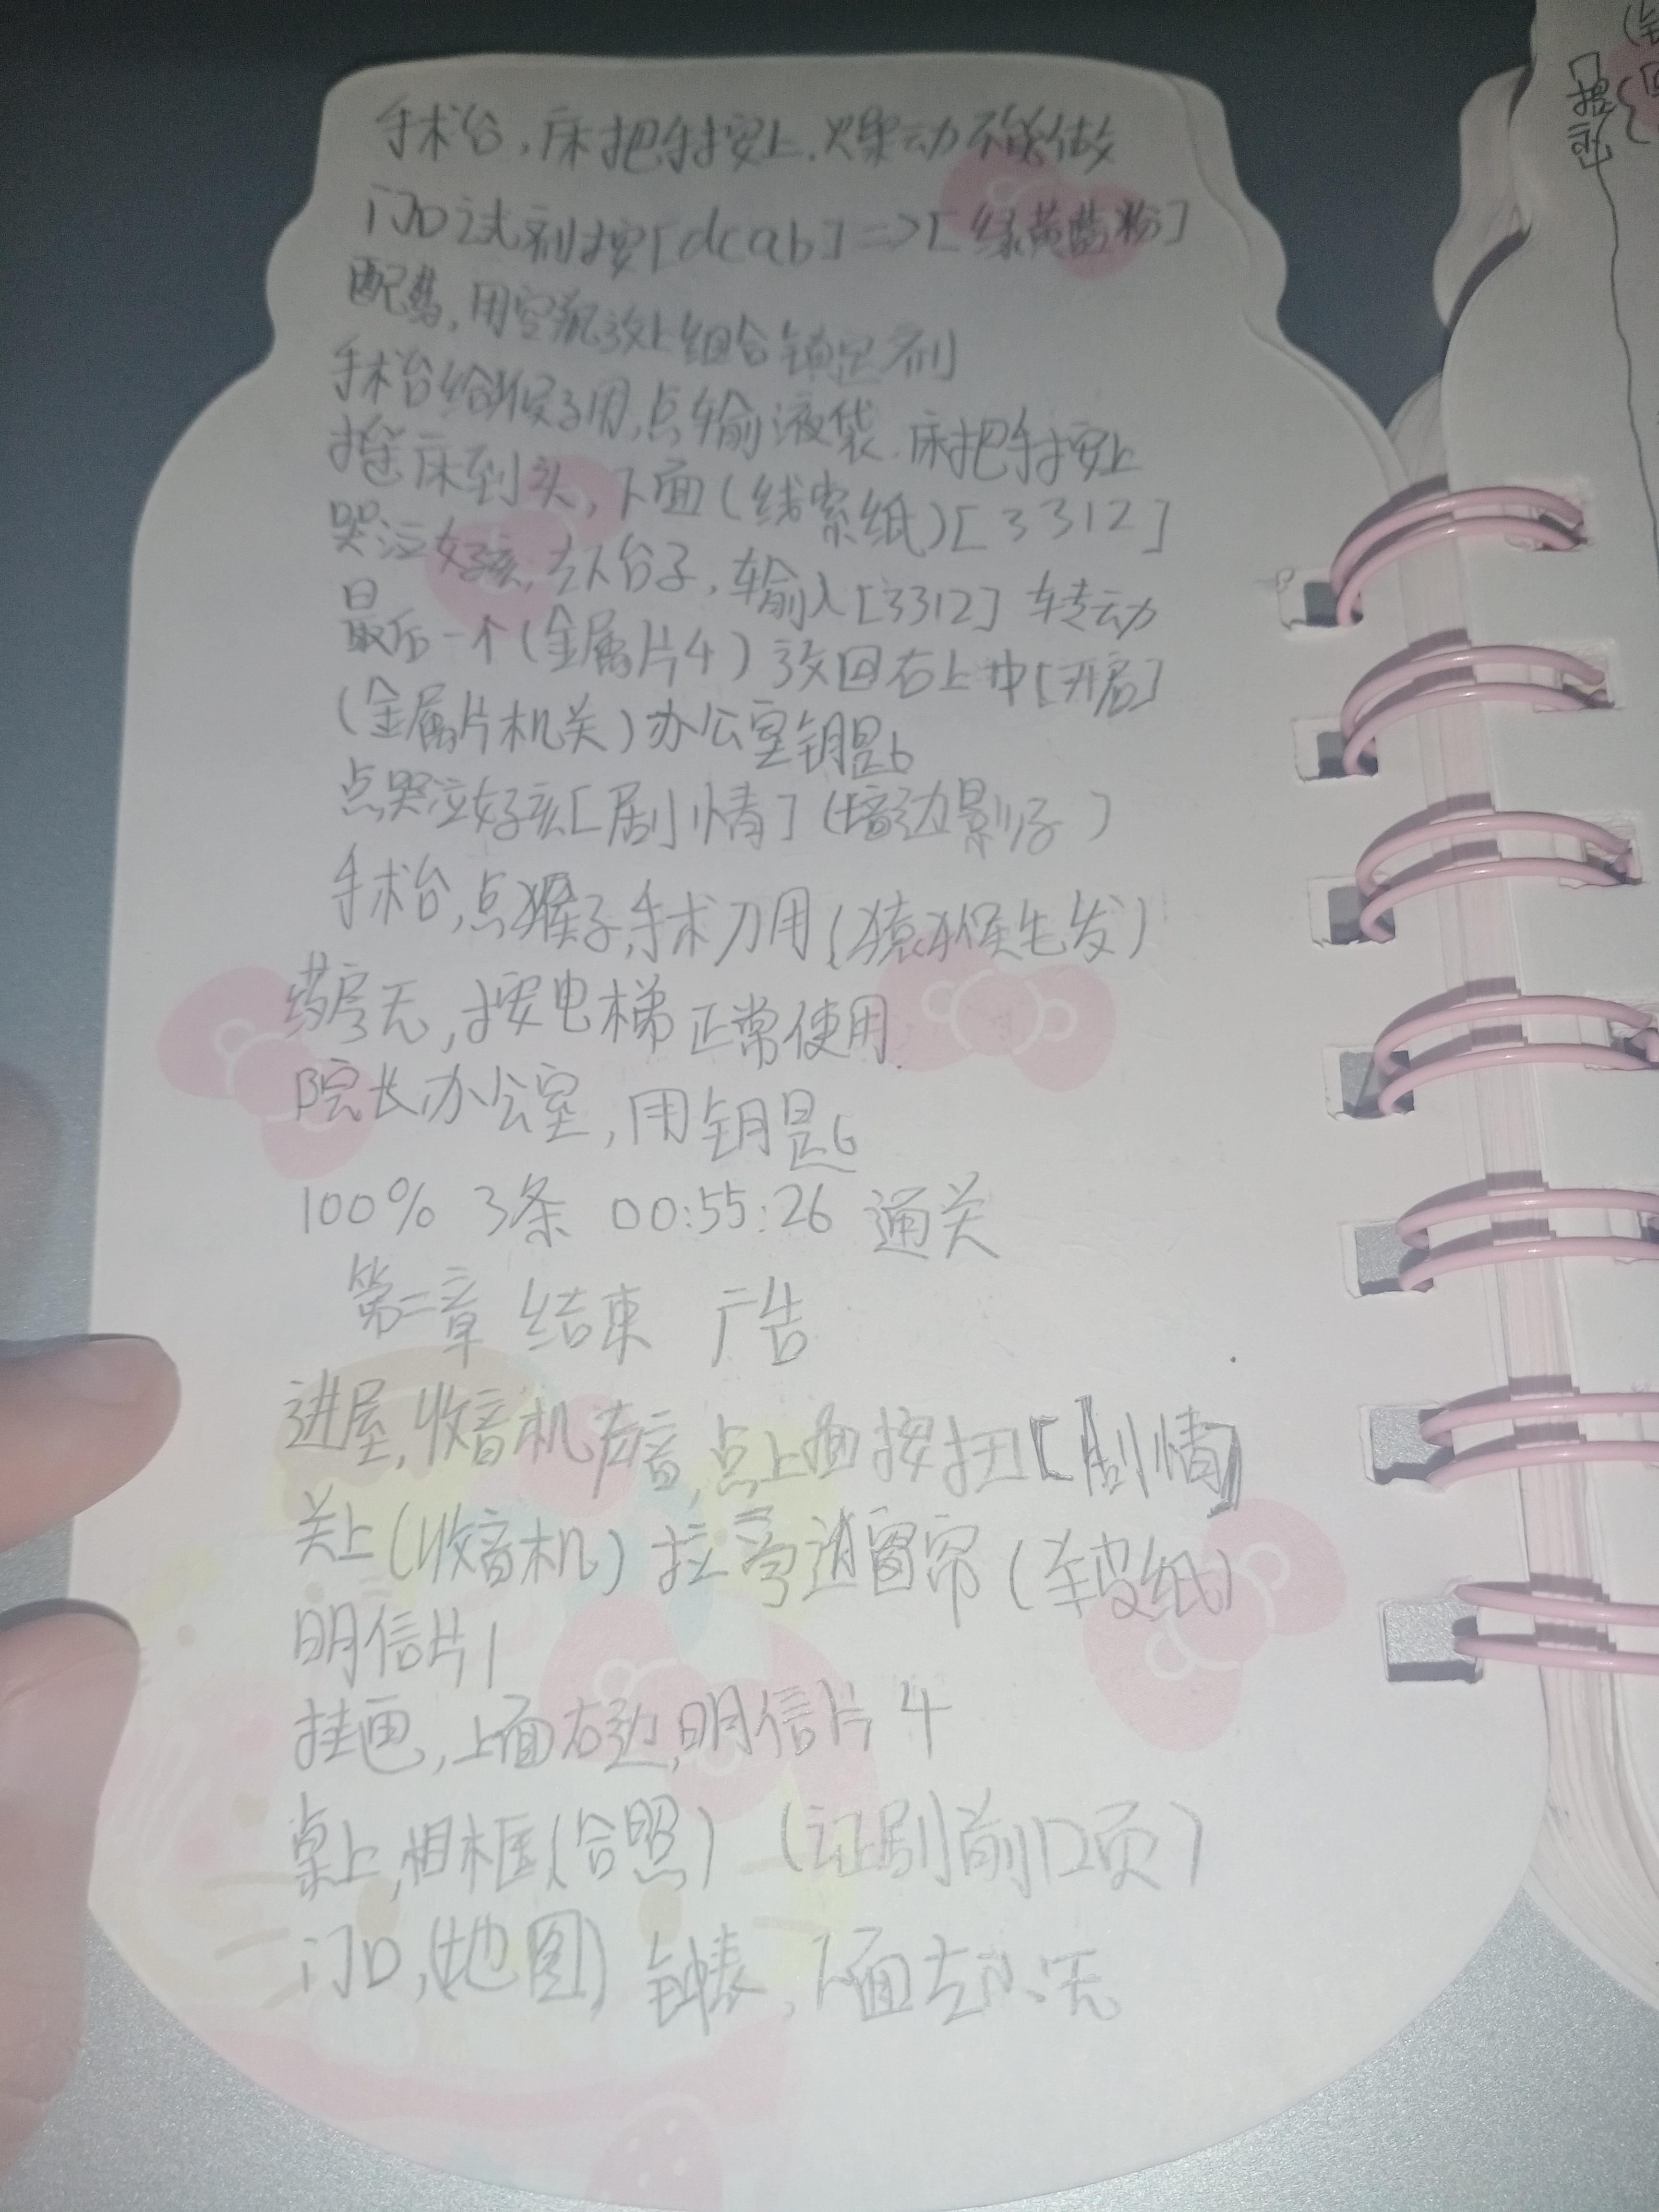 手术台，床把手按上，燥动不能做
门口试剂按[dcab]=>[绿黄蓝粉]
配药，用空瓶放上组合镇定剂
手术台给猴子用，点输液袋，床把手按上
摇床到头，下面(线索纸)[3312]
哭泣女孩，左下台子，输入[3312]转动
最后一个(金属片4)放回右上中[开启]
(金属片机关)办公室钥匙6
点哭泣女孩[剧情](墙边影子)
手术台，点猴子，手术刀用(猿猴毛发)
药房无，按电梯正常使用
院长办公室，用钥匙6
100% 3条 00:55:26 通关
第二章 结束 广告
进屋，收音机声音，点上面按扭[剧情]
关上(收音机)拉旁边窗帘(牛皮纸)
明信片1
挂画，上面右边，明信片4
桌上，相框(合照)
门口，(地图)钟表，下面左